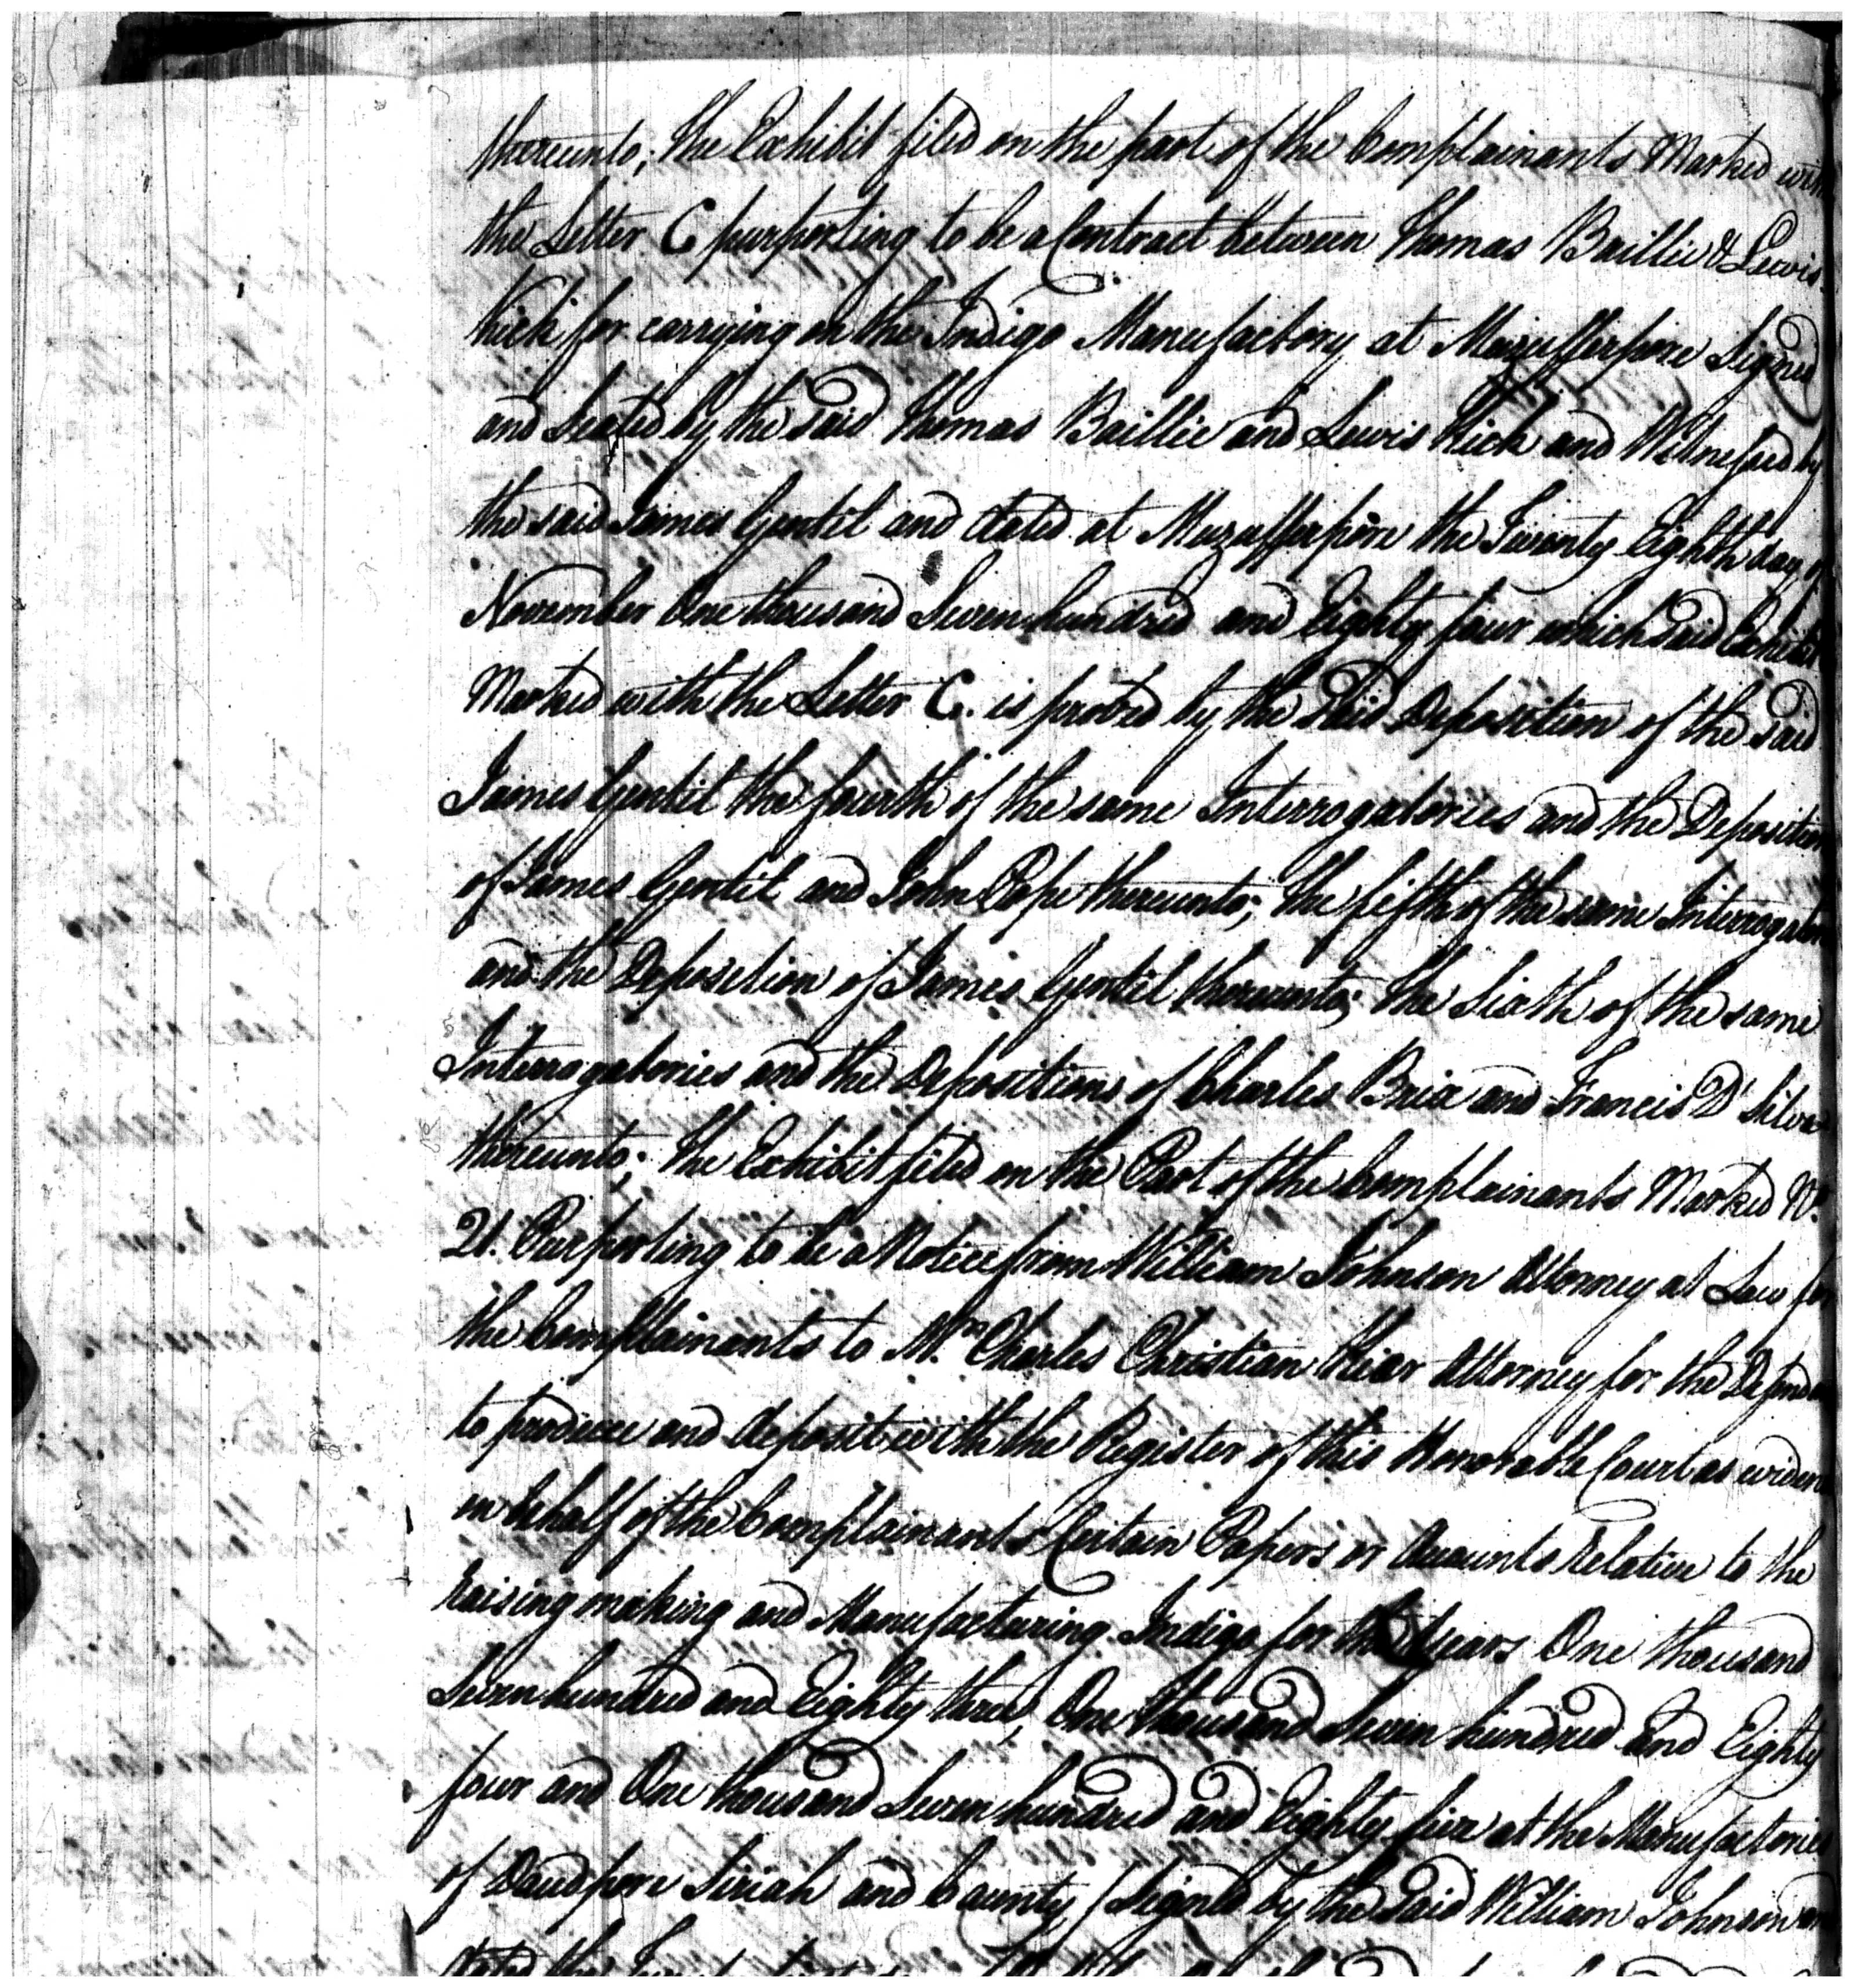 thereunto; the Exhibit filed on the part of the Complainants Marked with
the Letter C purporting to be a Contract between Thomas Baillie & Lewis
Kick for carrying on the Indigo Manufactory at Mozufferpore Signed
and Sealed by the said Thomas Baillie and Lewis Kick and Witnessed by
the said James Gentil and dated at Muzufferpore the Twenty Eighth day of
November One thousand Seven hundred and Eighty four which said Exhibit
Marked with the Letter C. is proved by the said Deposition of the said
James Gentil the fourth of the same Interrogatories and the Deposition
of James Gentil and John Pope thereunto; the fifth of the same
and the Deposition of James Gentil thereunto; the Sixth of the same
Interrogatories and the Depositions of Charles Brix and Francis D'Silva
thereunto; the Exhibit filed on the Part of the Complainants Marked No.
21. Purporting to be a Notice from William Johnson Attorney at Law for
the Complainants to Mr. Charles Christian Attorney for the
to produce and deposit with the Register of this Honorable Court as
on behalf of the Complainants Certain Papers or Accounts relative to the
raising making and Manufacturing Indigo for the Years One thousand
Seven hundred and Eighty three, One thousand Seven hundred and Eighty
four and One thousand Seven hundred and Eighty five at the Manufactories
of Daudpore Siriah and (Signed by the Said William Johnson and
dated the